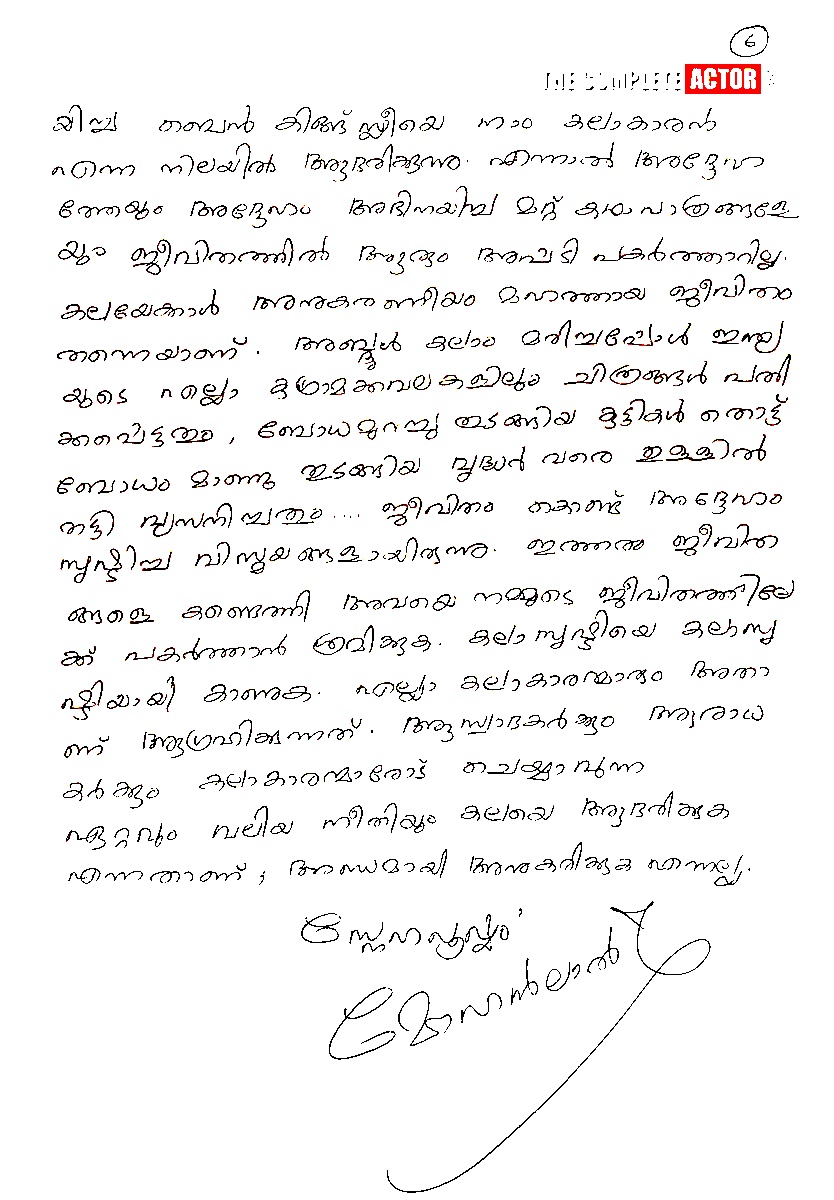 6
THE COMPLETE ACTOR
യിച്ച ബെൻ കിങ്ങ് സ്ലിയെ നാം കലാകാരൻ
എന്ന നിലയിൽ ആദരിക്കുന്നു. എന്നാൽ അദ്ദേഹ
ത്തേയും അദ്ദേഹം അഭിനയിച്ച മറ്റ് കഥാപാത്രങ്ങളേ
യും ജീവിതത്തിൽ ആരും അപ്പടി പകർത്താറില്ല.
കലയേക്കാൾ അനുകരണീയം മഹത്തായ ജീവിതം
തന്നെയാണ്. അബ്ദുൾ കലാം മരിച്ചപ്പോൾ ഇന്ത്യ
യുടെ എല്ലാ ഗ്രാമക്കവലകളിലും ചിത്രങ്ങൾ പതി
ക്കപ്പെട്ടതും, ബോധമുറച്ചു തുടങ്ങിയ കുട്ടികൾ തൊട്ട്
ബോധം മാഞ്ഞു തുടങ്ങിയ വൃദ്ധർ വരെ ഉള്ളിൽ
തട്ടി വ്യസനിച്ചതും .... ജീവിതം കൊണ്ട് അദ്ദേഹം
സൃഷ്ടിച്ച വിസ്മയങ്ങളായിരുന്നു. ഇത്തരം ജീവിത
ങ്ങളെ കണ്ടെത്തി അവയെ നമ്മുടെ ജീവിതത്തിലേ
ക്ക് പകർത്താൻ ശ്രമിക്കുക. കലാസൃഷ്ടിയെ കലാസൃ
ഷ്ടിയായി കാണുക. എല്ലാ കലാകാരന്മാരും അതാ
ണ് ആഗ്രഹിക്കുന്നത്. ആസ്വാദകർക്കും ആരാധ
കർക്കും കലാകാരന്മാരോട് ചെയ്യാവുന്ന
ഏറ്റവും വലിയ നീതിയും കലയെ ആദരിക്കുക
എന്നതാണ് ; അന്ധമായി അനുകരിക്കുക എന്നല്ല.
സ്നേഹപൂർവ്വം
മോഹൻലാൽ